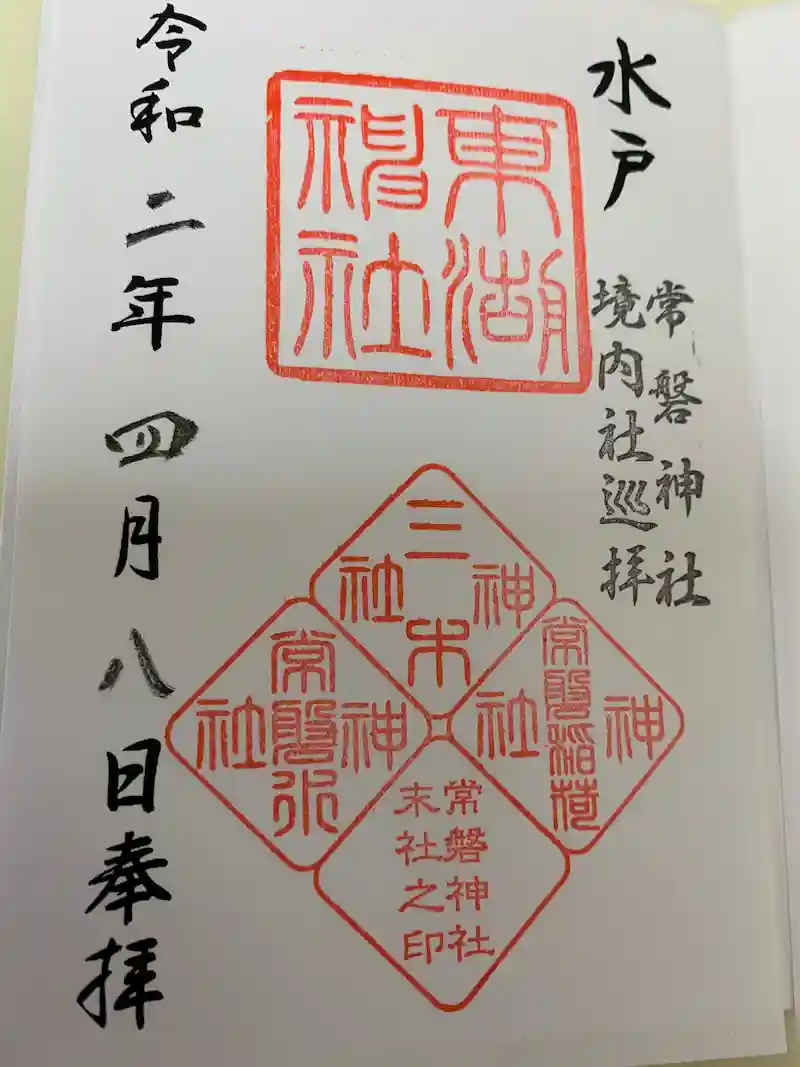 水戸
常磐神社
境内社巡拝
東湖
神社
三木
神社
常磐稲荷
神社
常磐水
神社
常磐神社
末社之印
令和二年四月八日奉拝